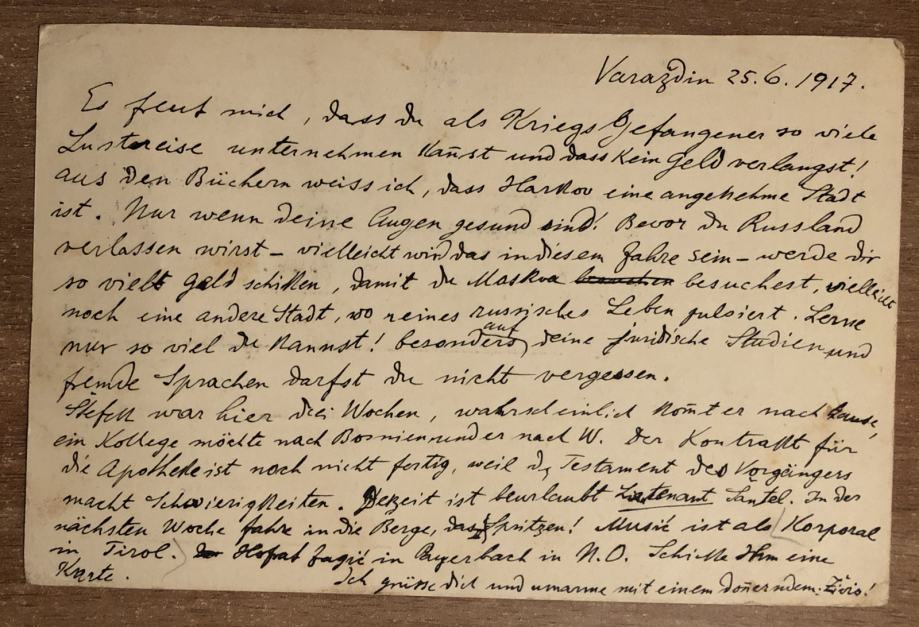 Varaždin 25.6.1917.
Es freut mich, dass du als KriegsGefangener so viele
Lustreise unternehmen kan̄st und dass kein Geld verlangst!
aus den Büchern weiss ich, dass Harkov eine angenehme Stadt
ist. Nur wenn deine Augen gesund sind! Bevor du Russland
verlassen wirst – vielleicht wird das in diesem Jahre sein – werde dir
so viel Geld schikken, damit du Moskva besuchen besuchest, vielleicht
noch eine andere Stadt, wo reines russisches Leben pulsiert. Lerne
nur so viel du kannst! besonders auf deine juridische Studien und
fremde Sprachen darfst du nicht vergessen.
Štefek war hier drei Wochen, wahrscheinlich kom̄t er nach Hause,
ein Kollege möchte nach Bosnien und er nach W. Der Kontrakt für
die Apotheke ist noch nicht fertig, weil Testament des Vorgängers
macht Schwierigkeiten. Derzeit ist beurlaubt Lieutenant Šantel. In der
nächsten Woche fahre in die Berge, Musić ist als Korporal
in Tirol. Hofrat Žagić in Payerbach in N.Ö. Schikke Ihm eine
Karte.
Ich grüsse dich und umarme mit einem don̄erndem: Živio!